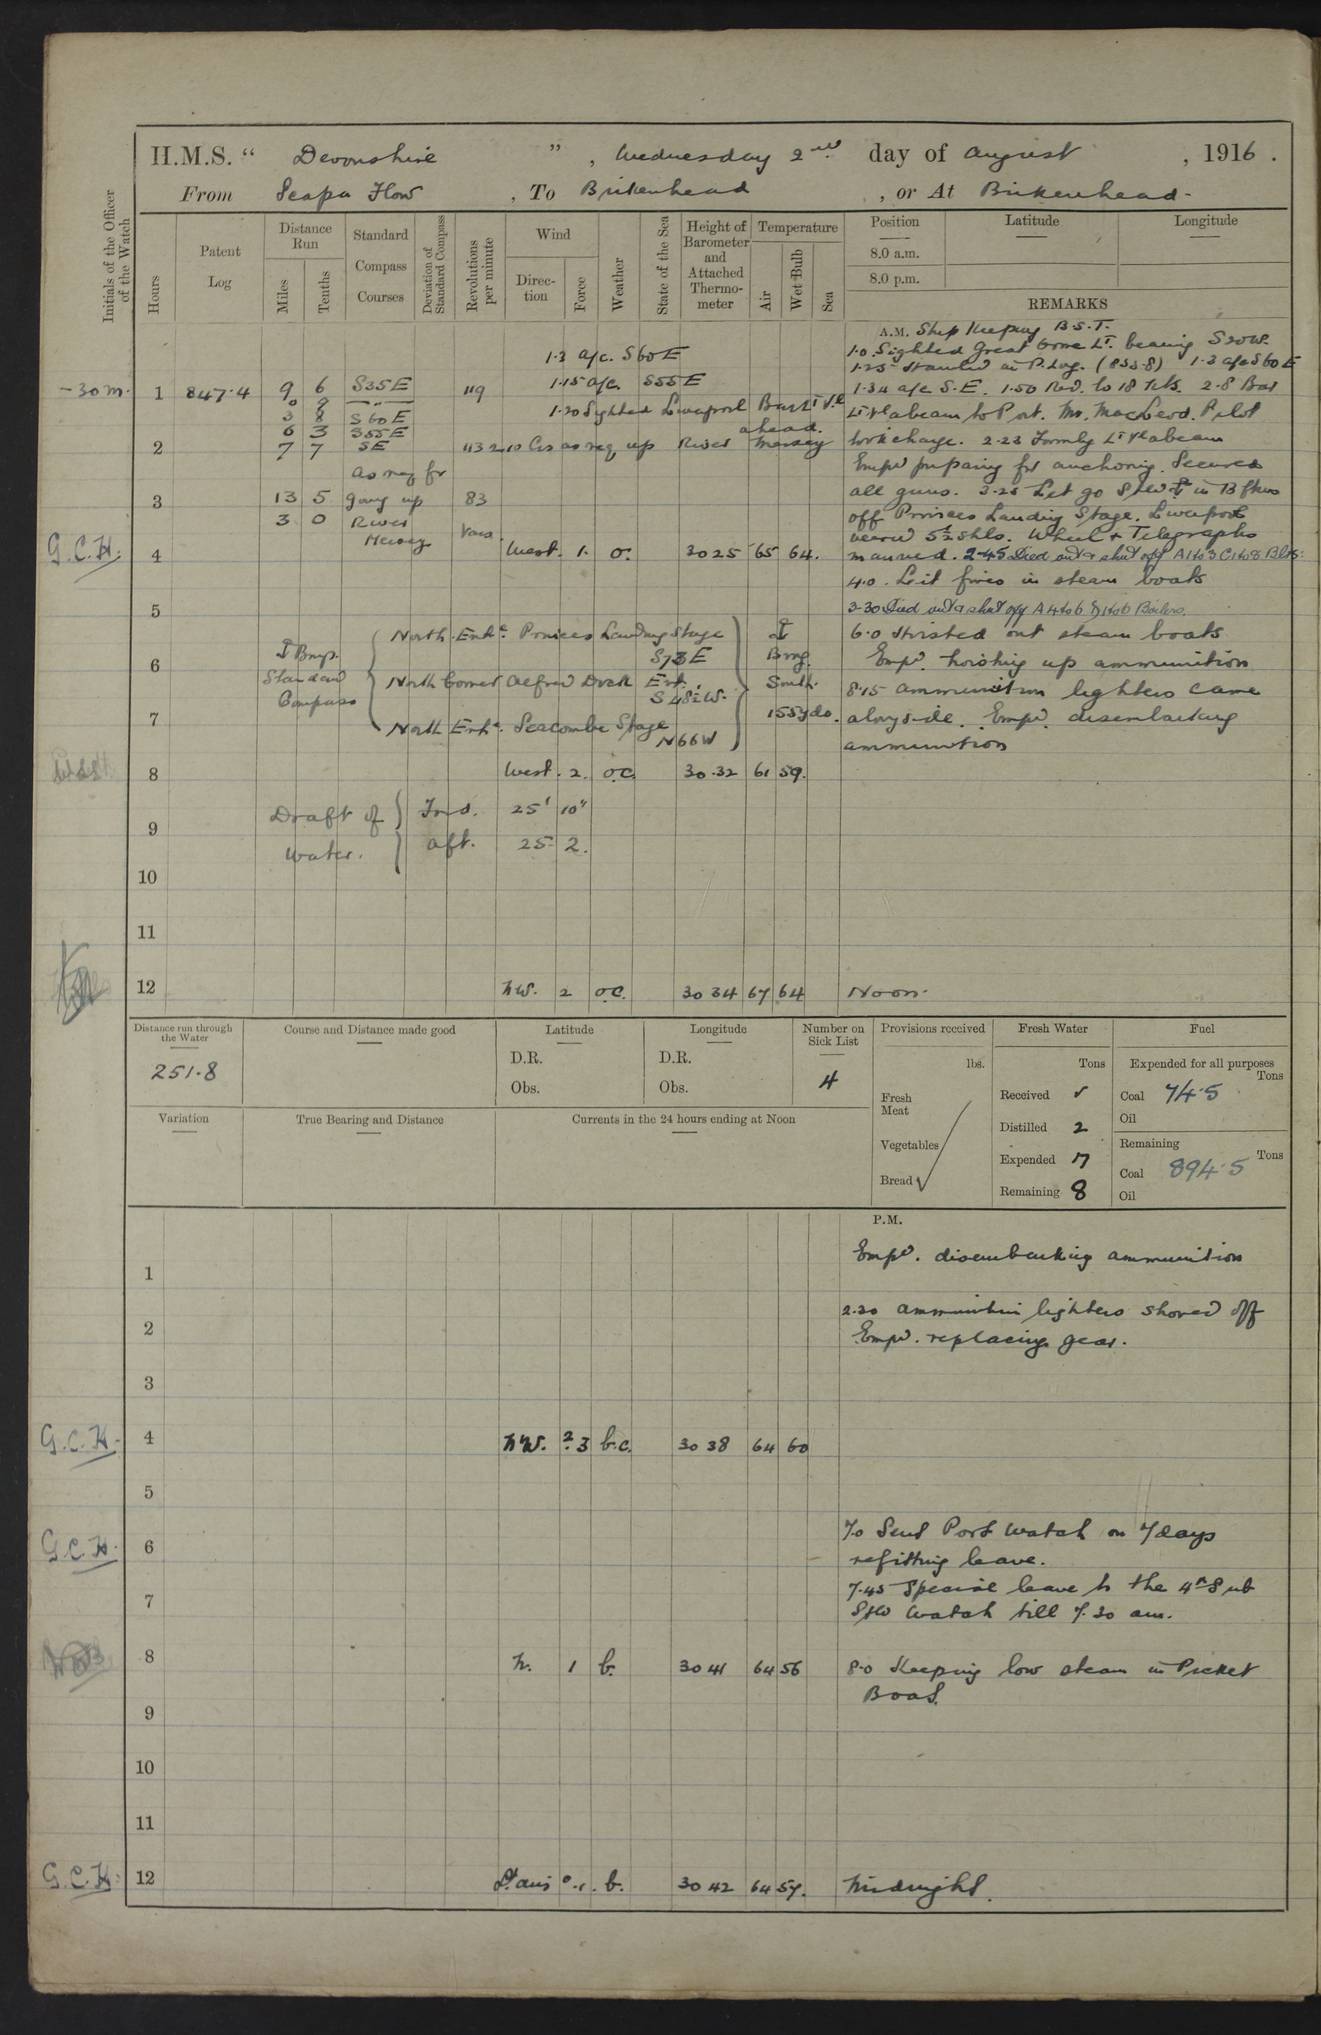 H.M.S. " Devonshire " , Wednesday 2nd day of August , 1916 .
From Scapa Flow , To Birkenhead , or At Birkenhead
Initials of the Officer of the Watch
Hours
Patent Log
Distance Run
Miles
Tenths
Standard Compass Courses
Deviation of Standard Compass
Revolutions per minute
Wind
Direction
Force
Weather
State of the Sea
Height of Barometer and Attached Thermometer
Temperature
Air
Wet Bulb
Sea
Position
Latitude
Longitude
8.0 a.m.
8.0 p.m.
REMARKS
A.M. Ship Keeping B.S.T.
1.0 Sighted Great Orme Lt. bearing S20W.
1.3 a/c. S60E
1.25 Started in P. Log. (853.8) 1.3 a/c S60E
-30m.
1 847.4 9 6 S35E 119
1.15 a/c. S55E
1.34 a/c S.E. 1.50 Red. to 18 Kts. 2.8 Bar
3 S60E
1.20 Sighted Liverpool Bar Lt Vl ahead.
Lt Vl abeam to Port. Mr. MacLeod. Pilot
6 3 S55E
2 7 7 SE 113 2.10 Cos as req up River Mersey
took charge. 2.23 Formby Lt Vl abeam
As req for
Empd preparing for anchoring. Secured
3 13 5 going up 83
all guns. 3.25 Let go Stbd in fms
3 0 River Mersey Vars
off Princes Landing Stage. Liverpool
veered 5½ shls. Wheel & Telegraphs
G.C.H.
4 West. 1. o. 30 25 65 64.
manned. 2-45 Died out & shut off A1 to 3 C1 to 8 Blrs:
4.0. Lit fires in steam boats
5
3-30 Died out & shut off A4 to 6 D1 to 6 Boilers.
North Entce Princes Landing Stage S73E
6.0 Hoisted out steam boats
6 Brngs. Standard Compass
Brng. South. 155 yds.
Empd. hoisting up ammunition
North Corner Alfred Dock Ent. S48½W.
8.15 ammunition lighters came
7
North Entce. Seacombe Stage N66W
alongside. Empd. disembarking
ammunition
8 West. 2. o.c. 30.32 61 59.
Draft of Water. Fwd. 25' 10"
9
aft. 25 2.
10
11
12 NW. 2 o.c. 30 34 67 64 Noon.
Distance run through the Water
251.8
Course and Distance made good
Latitude
D.R.
Obs.
Longitude
D.R.
Obs.
Number on Sick List
4
Provisions received
lbs.
Fresh Meat
Vegetables
Bread ✓
Fresh Water
Tons
Received ✓
Distilled 2
Expended 7
Remaining 8
Fuel
Expended for all purposes
Tons
Coal 74.5
Oil
Remaining
Tons
Coal 894.5
Oil
Variation
True Bearing and Distance
Currents in the 24 hours ending at Noon
P.M.
Empd. disembarking ammunition
1
2.20 ammunition lighters shoved off
2
Empd. replacing gear.
3
G.C.H.
4 NW. 2.3 b.c. 30 38 64 60
5
7.0 Sent Port Watch on 7 days
G.C.H.
6
refitting leave.
7.45 Special leave to the 4th Sub
7
Stbd Watch till 7.30 am.
8 N. 1 b. 30 41 64 56 8.0 Keeping low steam in Picket
Boat.
9
10
11
G.C.H.
12 Lt airs 0.1. b. 30 42 64 57. Midnight.